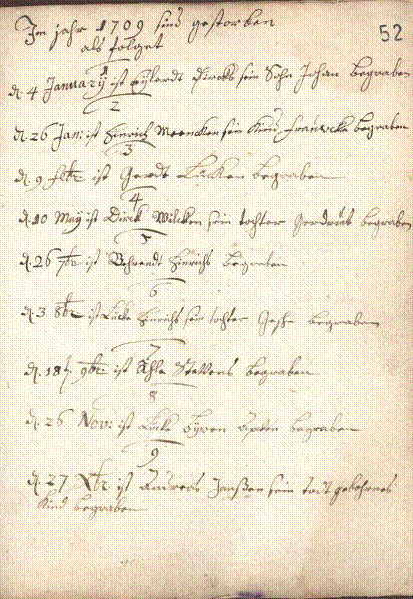 52
Im jahr 1709 sind gestorben
als folget
1
d. 4 Januarij ist Eylerdt Dircks sein Sohn Johan begraben
2
d. 26 Jan: ist Hinrich Meencken sein Kind begraben
3
d. 9 febr ist Gerdt Lücken begraben
4
d. 20 May ist Dirck Wilcken sein tochter Gerdrut begraben
5
d. 26 7br ist Behrendt Hinrichs begraben
6
d. 3 8br ist Lücke Hinrichs sein tochter Geske begraben
7
d. 18 9br ist Ahle Stettens begraben
8
d. 26 Nov: ist Lück begraben
9
d. 27 Xbr ist Andreas Janßen sein todt gebohrnes
Kind begraben